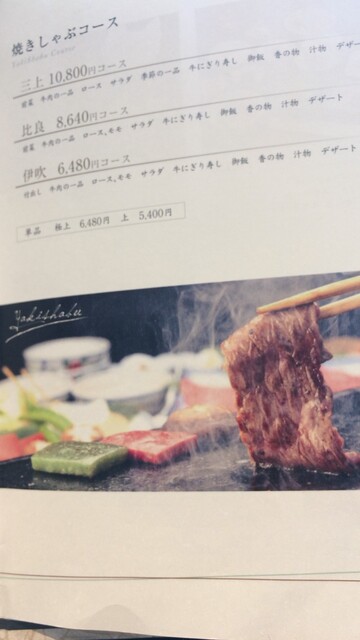 焼きしゃぶコース
Yakishabu Course
三上 10,800円コース
前菜 牛肉の一品 ロース サラダ 季節の一品 牛にぎり寿し 御飯 香の物 汁物 デザー
比良 8,640円コース
前菜 牛肉の一品 ロース、モモ サラダ 牛にぎり寿し 御飯 香の物 汁物 デザート
伊吹 6,480円コース
付出し 牛肉の一品 ロース、モモ サラダ 牛にぎり寿し 御飯 香の物 汁物 デザート
単品 極上 6,480円 上 5,400円
Yakishabu